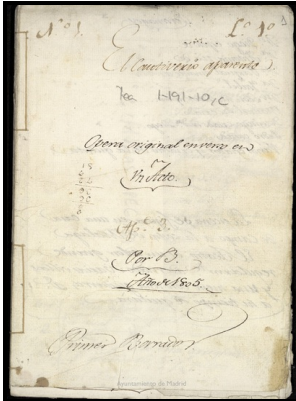 Nº 1. Lº 4º
El Cautiverio aparente
Tea 1-191-10, c
Opera original en verso en
Un Acto.
Apº 3.
Por B.
Año de 1805.
Primer Borrador
Ayuntamiento de Madrid